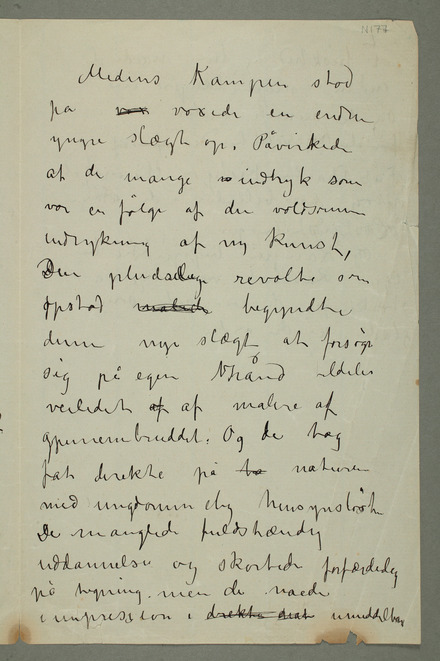 N177
Medens Kampen stod
på voxede en endnu
yngre slægt op. Påvirkede
af de mange indtryk som
var en følge af den voldsomme
indrykning af ny Kunst,
Den pludselige revolte som
opstod malede begyndte
denne nye slægt at forsøge
sig på egen hånd ildeles
veiledet af af malere af
gjennembruddet. Og de tog
fat direkte på naturen
med ungdommelig hensynsløshet
De manglede fuldstændig
uddannelse og skortede forfærdelig
på tegning. men de naede
impression i direkte umiddelbar